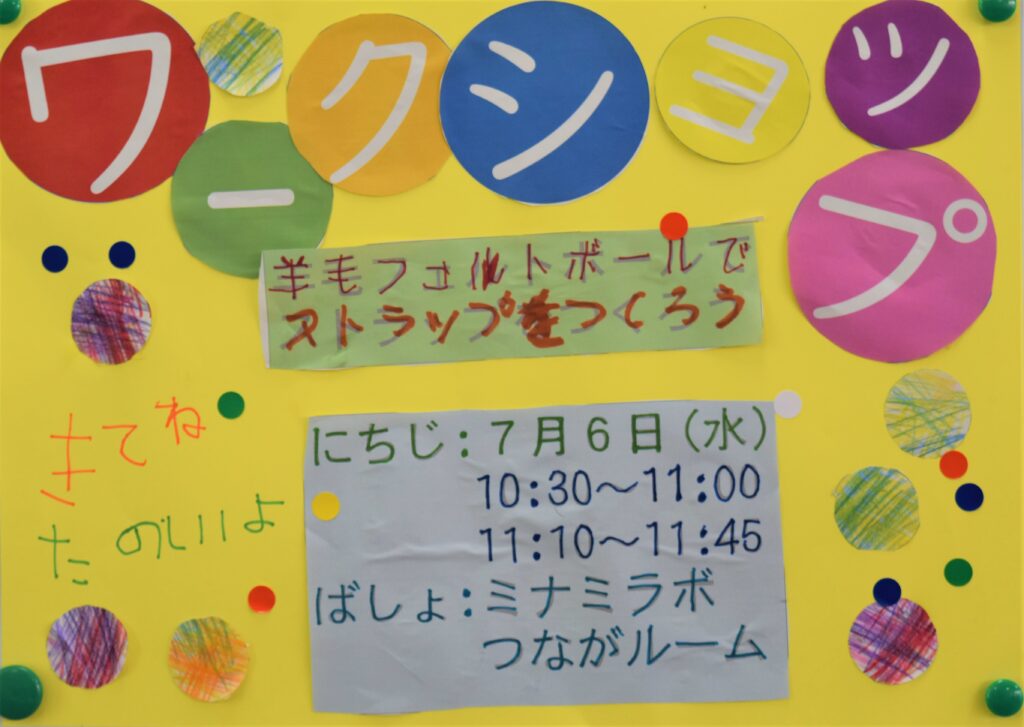 ワークショップ
羊毛フェルトボールで
ストラップをつくろう
にちじ:7月6日(水)
10:30～11:00
11:10～11:45
ばしょ:ミナミラボ
つながルーム
きてね
たのしいよ